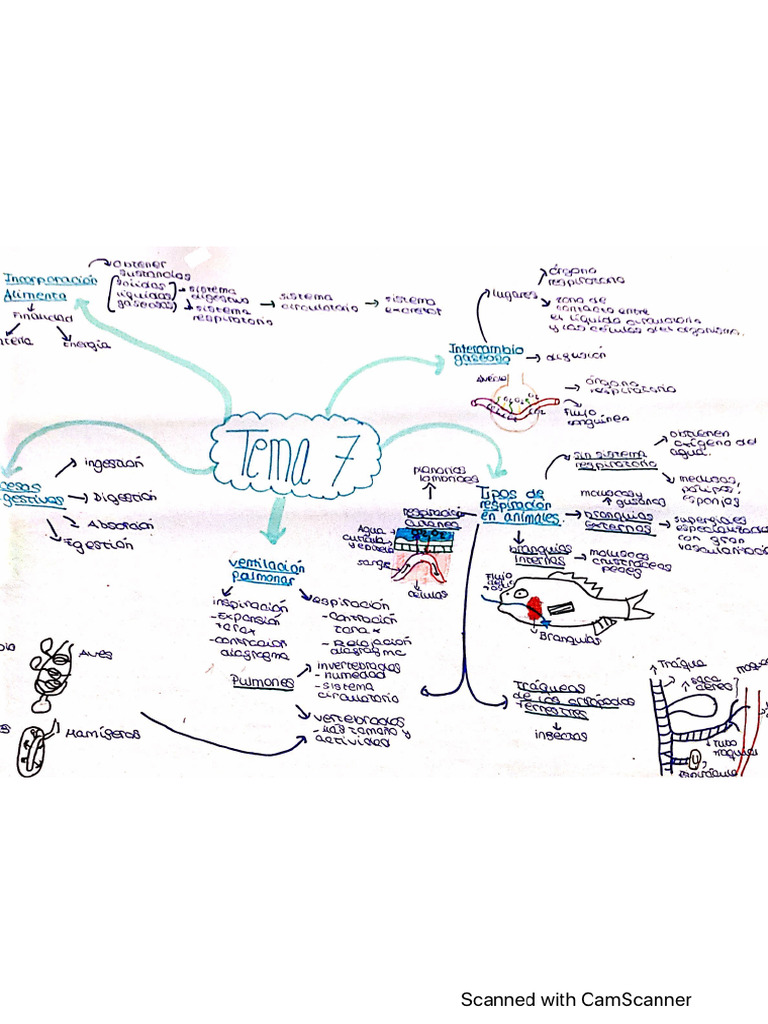 Tema 7
Incorporación
Alimento
Obtener
sustancias
sólidas
líquidas
gaseosas
sistema
digestivo
sistema
respiratorio
sistema
circulatorio
sistema
excretor
Finalidad
Energía
Intercambio
gaseoso
lugares
órgano
respiratorio
zona de
contacto entre
el líquido circulatorio
y las células del organismo.
difusión
Alvéolo
órgano
respiratorio
Flujo
sanguíneo
ingestión
Digestión
Absorción
Egestión
Tipos de
respiración
en animales.
sin sistema
respiratorio
obtienen
oxígeno del
agua.
medusas,
pólipos,
esponjas
branquias
externas
moluscos y
gusanos
superficies
especializadas
con gran
branquias
internas
moluscos
crustáceos
peces
Branquias
respiración
cutánea
planarias
Agua
sangre
células
ventilación
pulmonar
inspiración
- Expansión
- contracción
diafragma
espiración
- Relajación
Pulmones
invertebrados
- humedad
- sistema
circulatorio
vertebrados
- Más tamaño y
actividad
Aves
Mamíferos
Tráqueas
de los artrópodos
terrestres
insectos
Tráquea
saco
aéreo
Tubo
espiráculo
Scanned with CamScanner